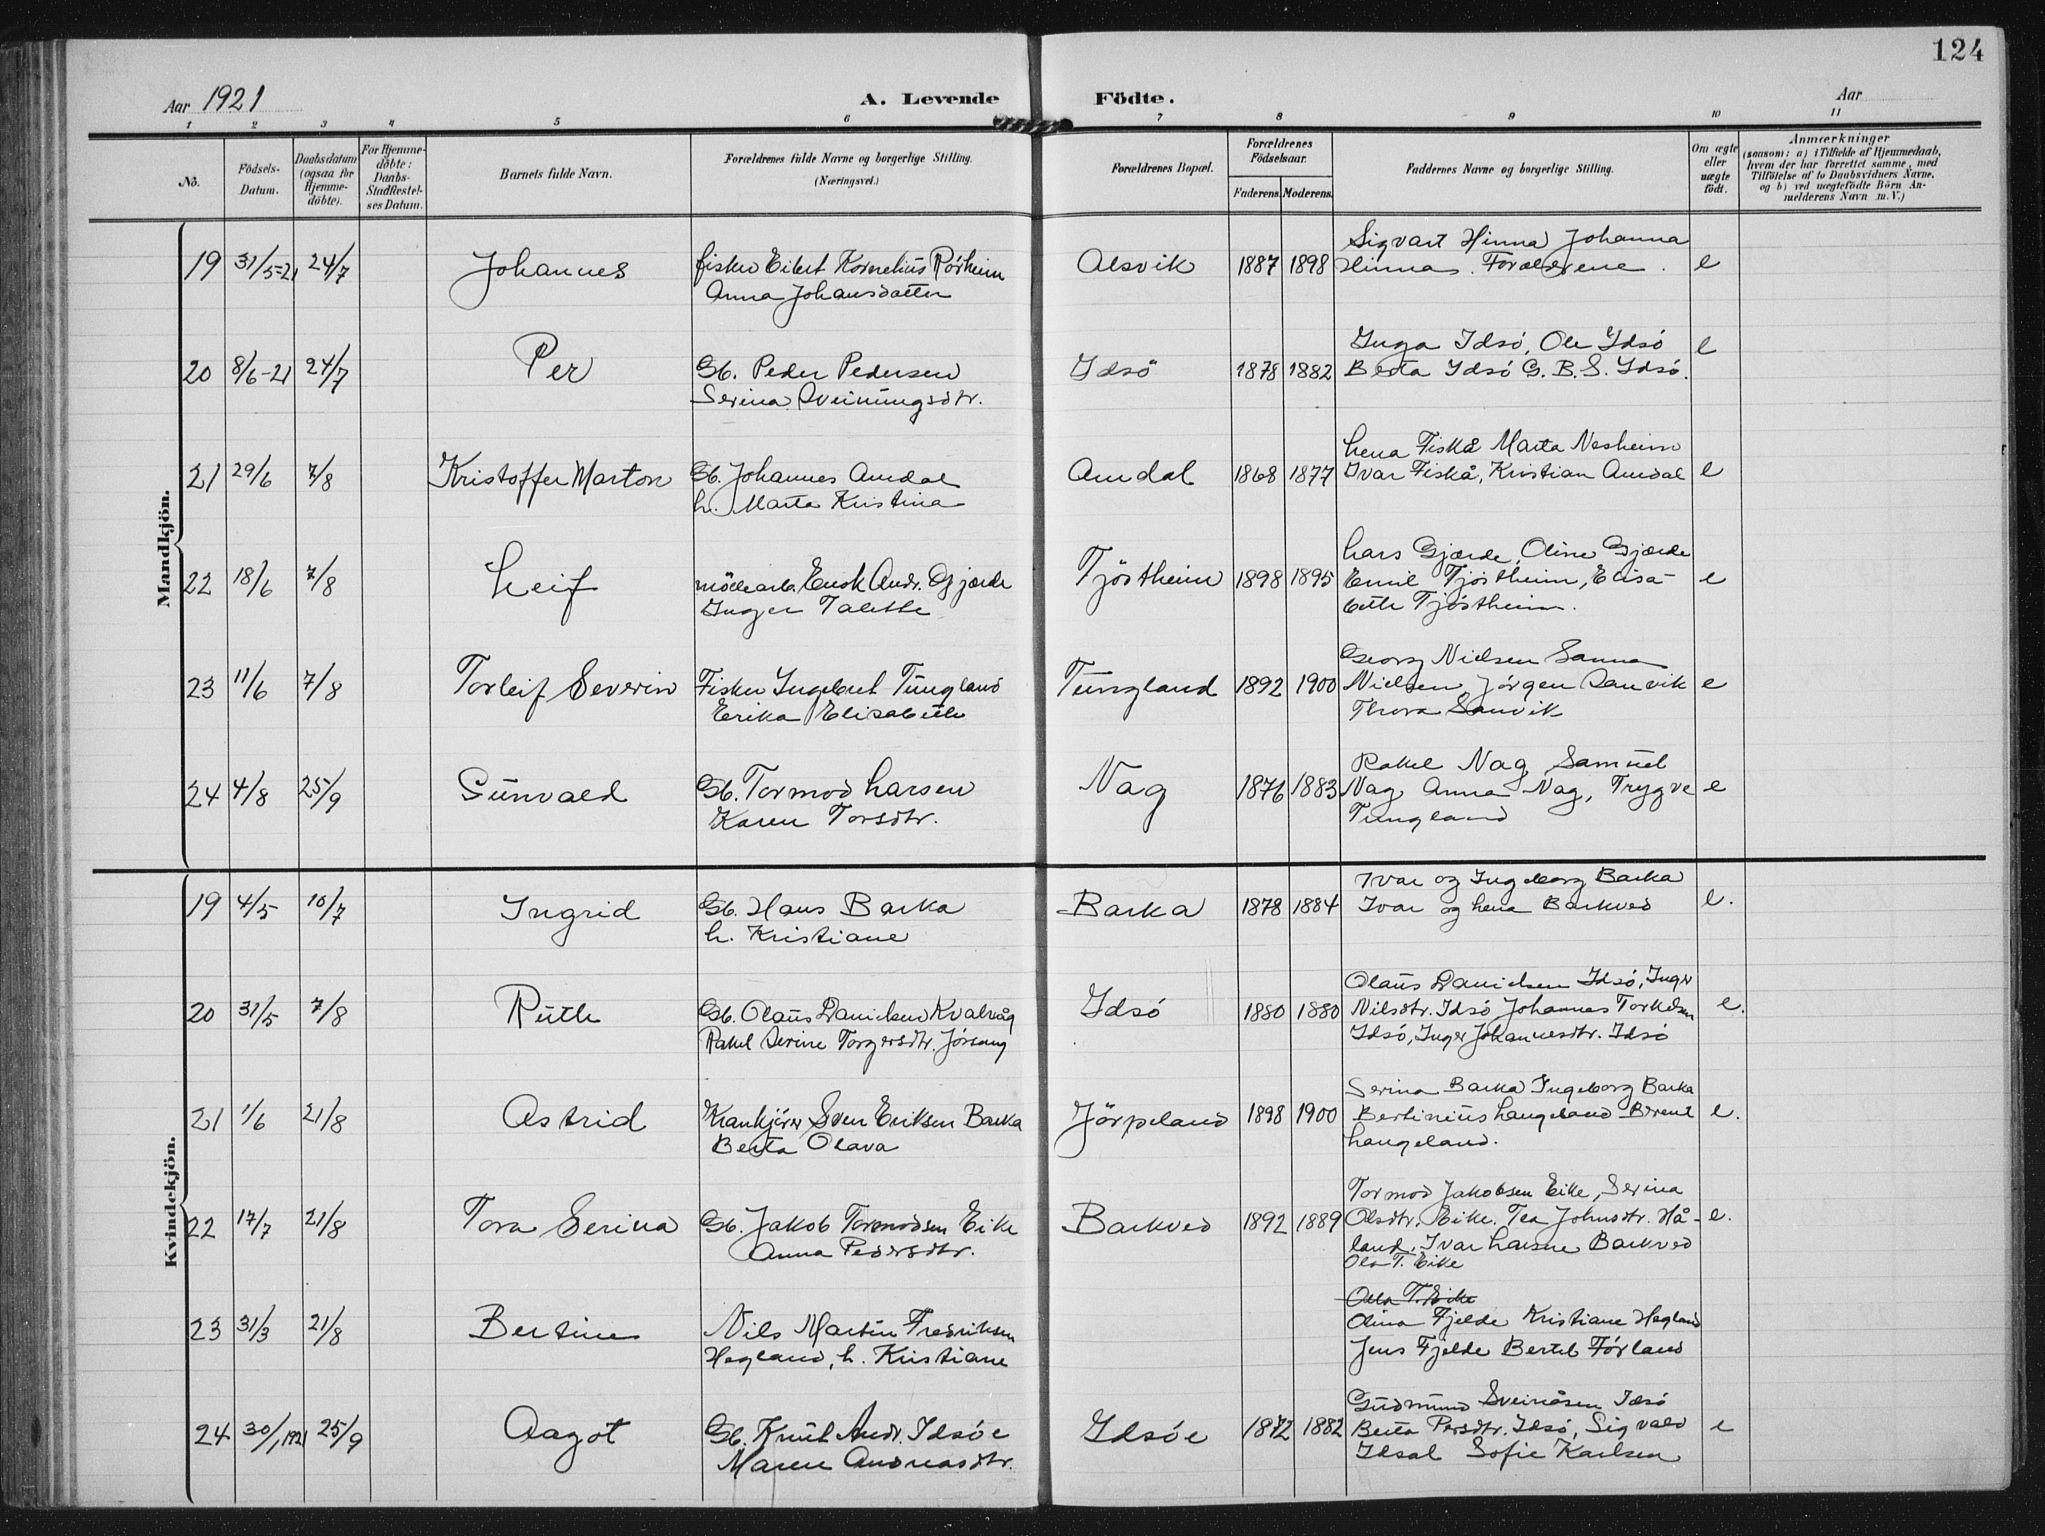 124
Aar 1921
A. Levende Födte.
Aar
1 2 3 4 5 6 7 8 9 10 11
No.
Födsels-Datum.
Daabsdatum (ogsaa for Hjemme-döbte).
For Hjemme-döbte: Daabs-Stadfæstel-ses Datum.
Barnets fulde Navn.
Forældrenes fulde Navne og borgerlige Stilling. (Næringsvei.)
Forældrenes Bopæl.
Forældrenes Födselsaar.
Faderens. Moderens.
Faddernes Navne og borgerlige Stilling.
Om ægte eller uægte födt.
Anmærkninger
(saasom: a) i Tilfælde af Hjemmedaab, hvem der har forrettet samme, med Tilföielse af to Daabsvidners Navne, og b) ved uægtefödte Börn An-melderens Navn m. V.)
Mandkjön.
19 31/5-21 24/7 Johannes fisker Eilert Kornelius Rörheim Alsvik 1887 1898 Sigvart Hinna Johanna
Anna Johansdatter Hinna. Forældrene. e
20 8/6-21 24/7 Per Gb. Peder Pedersen Idsö 1878 1882 Inga Idsö, Ole Idsö e
Serina Sveinungsdtr. Berta Idsö G. B. S. Idsö.
21 29/6 7/8 Kristoffer Marton Gb. Johannes Amdal Amdal 1868 1877 Lena Fiskå Marta Nesheim
h. Marta Kristina Ivar Fiskå, Kristian Amdal e
22 18/6 7/8 Leif Andr. Gjærde Tjöstheim 1898 1895 Lars Gjærde, Oline Gjærde
Inger Talette Emil Tjöstheim, Elisa-
bette Tjöstheim. e
23 11/6 7/8 Torleif Severin Fisker Ingebret Tungland Tungland 1892 1900 Georg Nielsen Sanna
Erika Elisabeth Nielsen Jörgen Sanvik e
Thora Sanvik
24 4/8 25/9 Gunvald Gb. Tormod Larsen Nag 1876 1883 Rakel Nag, Samuel
Karen Torsdtr. Nag Anna Nag, Trygve e
Tungland
Kvindekjön.
19 4/5 10/7 Ingrid Gb. Hans Barka Barka 1878 1884 Ivar og Ingeborg Barka
h. Kristiane Ivar og Lena Barkved e.
20 31/5 7/8 Ruth Gb. Olaus Danielsen Kvalvåg Idsö 1880 1880 Olaus Danielsen Idsö, Inger
Rakel Serine Torgersdtr. Jörsang Nilsdtr. Idsö Johannes Torkelsen e.
Idsö, Inger Johannesdtr. Idsö
21 1/6 21/8 Astrid Krankjörer Sven Eriksen Barka Jörpeland 1898 1900 Serina Barka Ingeborg Barka
Berta Olava Bertinius Langeland Berent e.
Langeland.
22 17/7 21/8 Tora Serina Gb. Jakob Tormodsen Eike Barkved 1892 1889 Tormod Jakobsen Eike, Serina
Anna Pedersdtr. Olsdtr. Eike. Tea Johnsdtr. Hå- e.
land, Ivar Larsen Barkved
Ola T. Eike
23 31/3 21/8 Bertine Nils Martin Fredriksen Ola T. Eike
Hegland, h. Kristiane Olina Fjelde Kristiane Hegland
Jens Fjelde Bertel Förland
24 30/1, 1921 25/9 Aagot Gb. Knut Andr. Idsöe Idsöe 1872 1882 Gudmund Sveinåsen Idsö
Maren Andreasdtr. Berta Persdtr. Idsö, Sigvald e
Idsal Sofie Karlsen